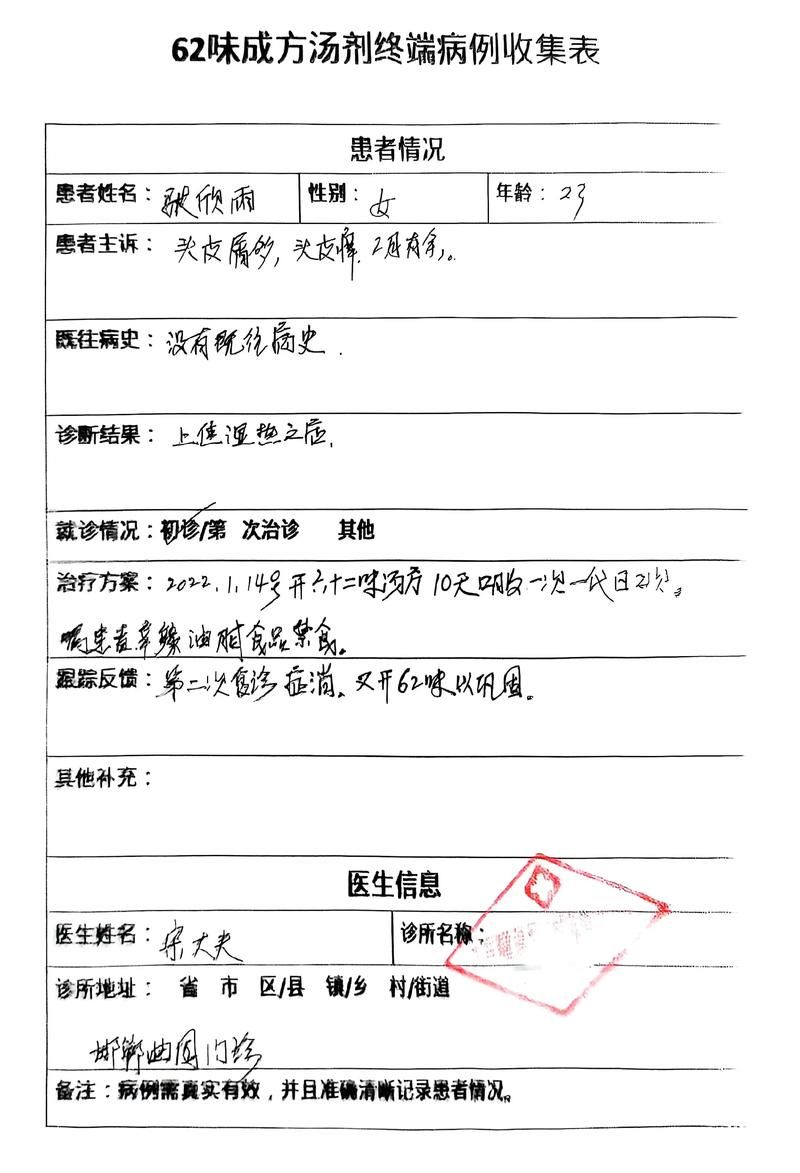 62味成方汤剂终端病例收集表
患者情况
患者姓名: 欣雨 性别: 女 年龄: 23
患者主诉: 头皮屑多,头皮痒,2月有余。
既往病史: 没有既往病史.
诊断结果: 上焦湿热之症.
就诊情况:初诊/第 次治诊 其他
治疗方案: 2022.1.14号开六十二味汤方10天 口服一次一代日2次。
嘱患者辛辣油腻食品禁食。
跟踪反馈: 第二次复诊症消。又开62味以巩固。
其他补充:
医生信息
医生姓名: 宋大夫 诊所名称:
诊所地址: 省 市 区/县 镇/乡 村/街道
邯郸曲周门诊
备注:病例需真实有效,并且准确清晰记录患者情况。